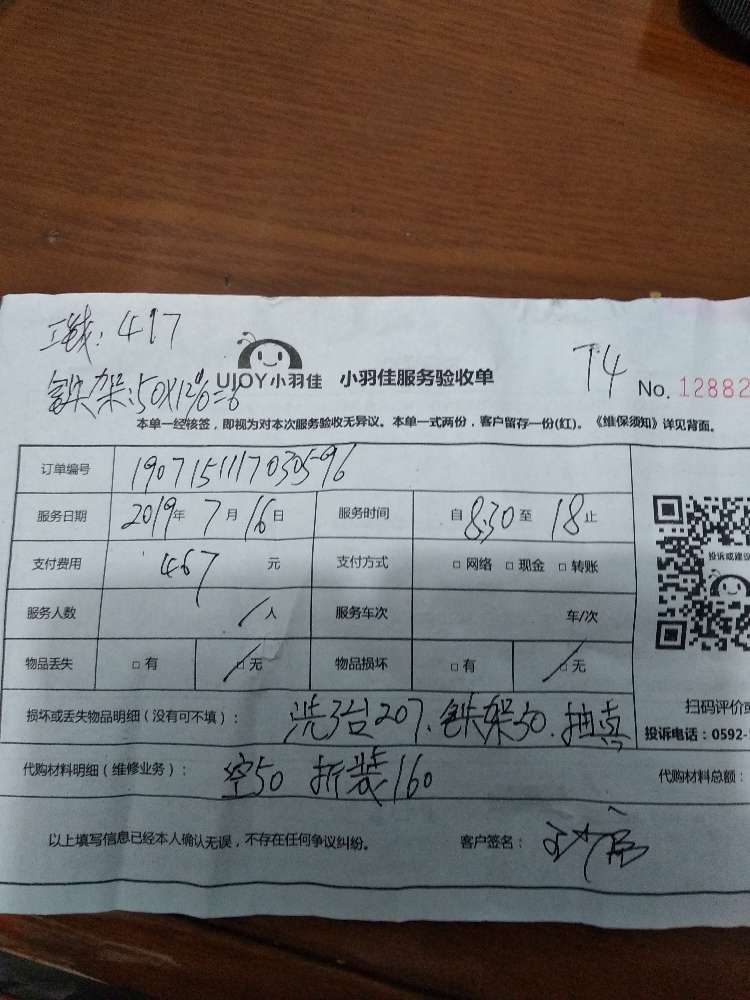 工钱：417
铁架：50×12%=6
UJOY小羽佳 小羽佳服务验收单 T4 No. 12882
本单一经核签，即视为对本次服务验收无异议。本单一式两份，客户留存一份(红)。《维保须知》详见背面。
订单编号 1907151117030596
服务日期 2019年7月16日 服务时间 自8:30至18止
支付费用 467元 支付方式 □网络 □现金 □转账
投诉或建议
服务人数 /人 服务车次 车/次
物品丢失 □有 □无 物品损坏 □有 □无
扫码评价或
损坏或丢失物品明细（没有可不填）： 洗3台207、铁架50、抽真
投诉电话：0592-
代购材料明细（维修业务）： 空50 折装160 代购材料总额：
以上填写信息已经本人确认无误，不存在任何争议纠纷。 客户签名：